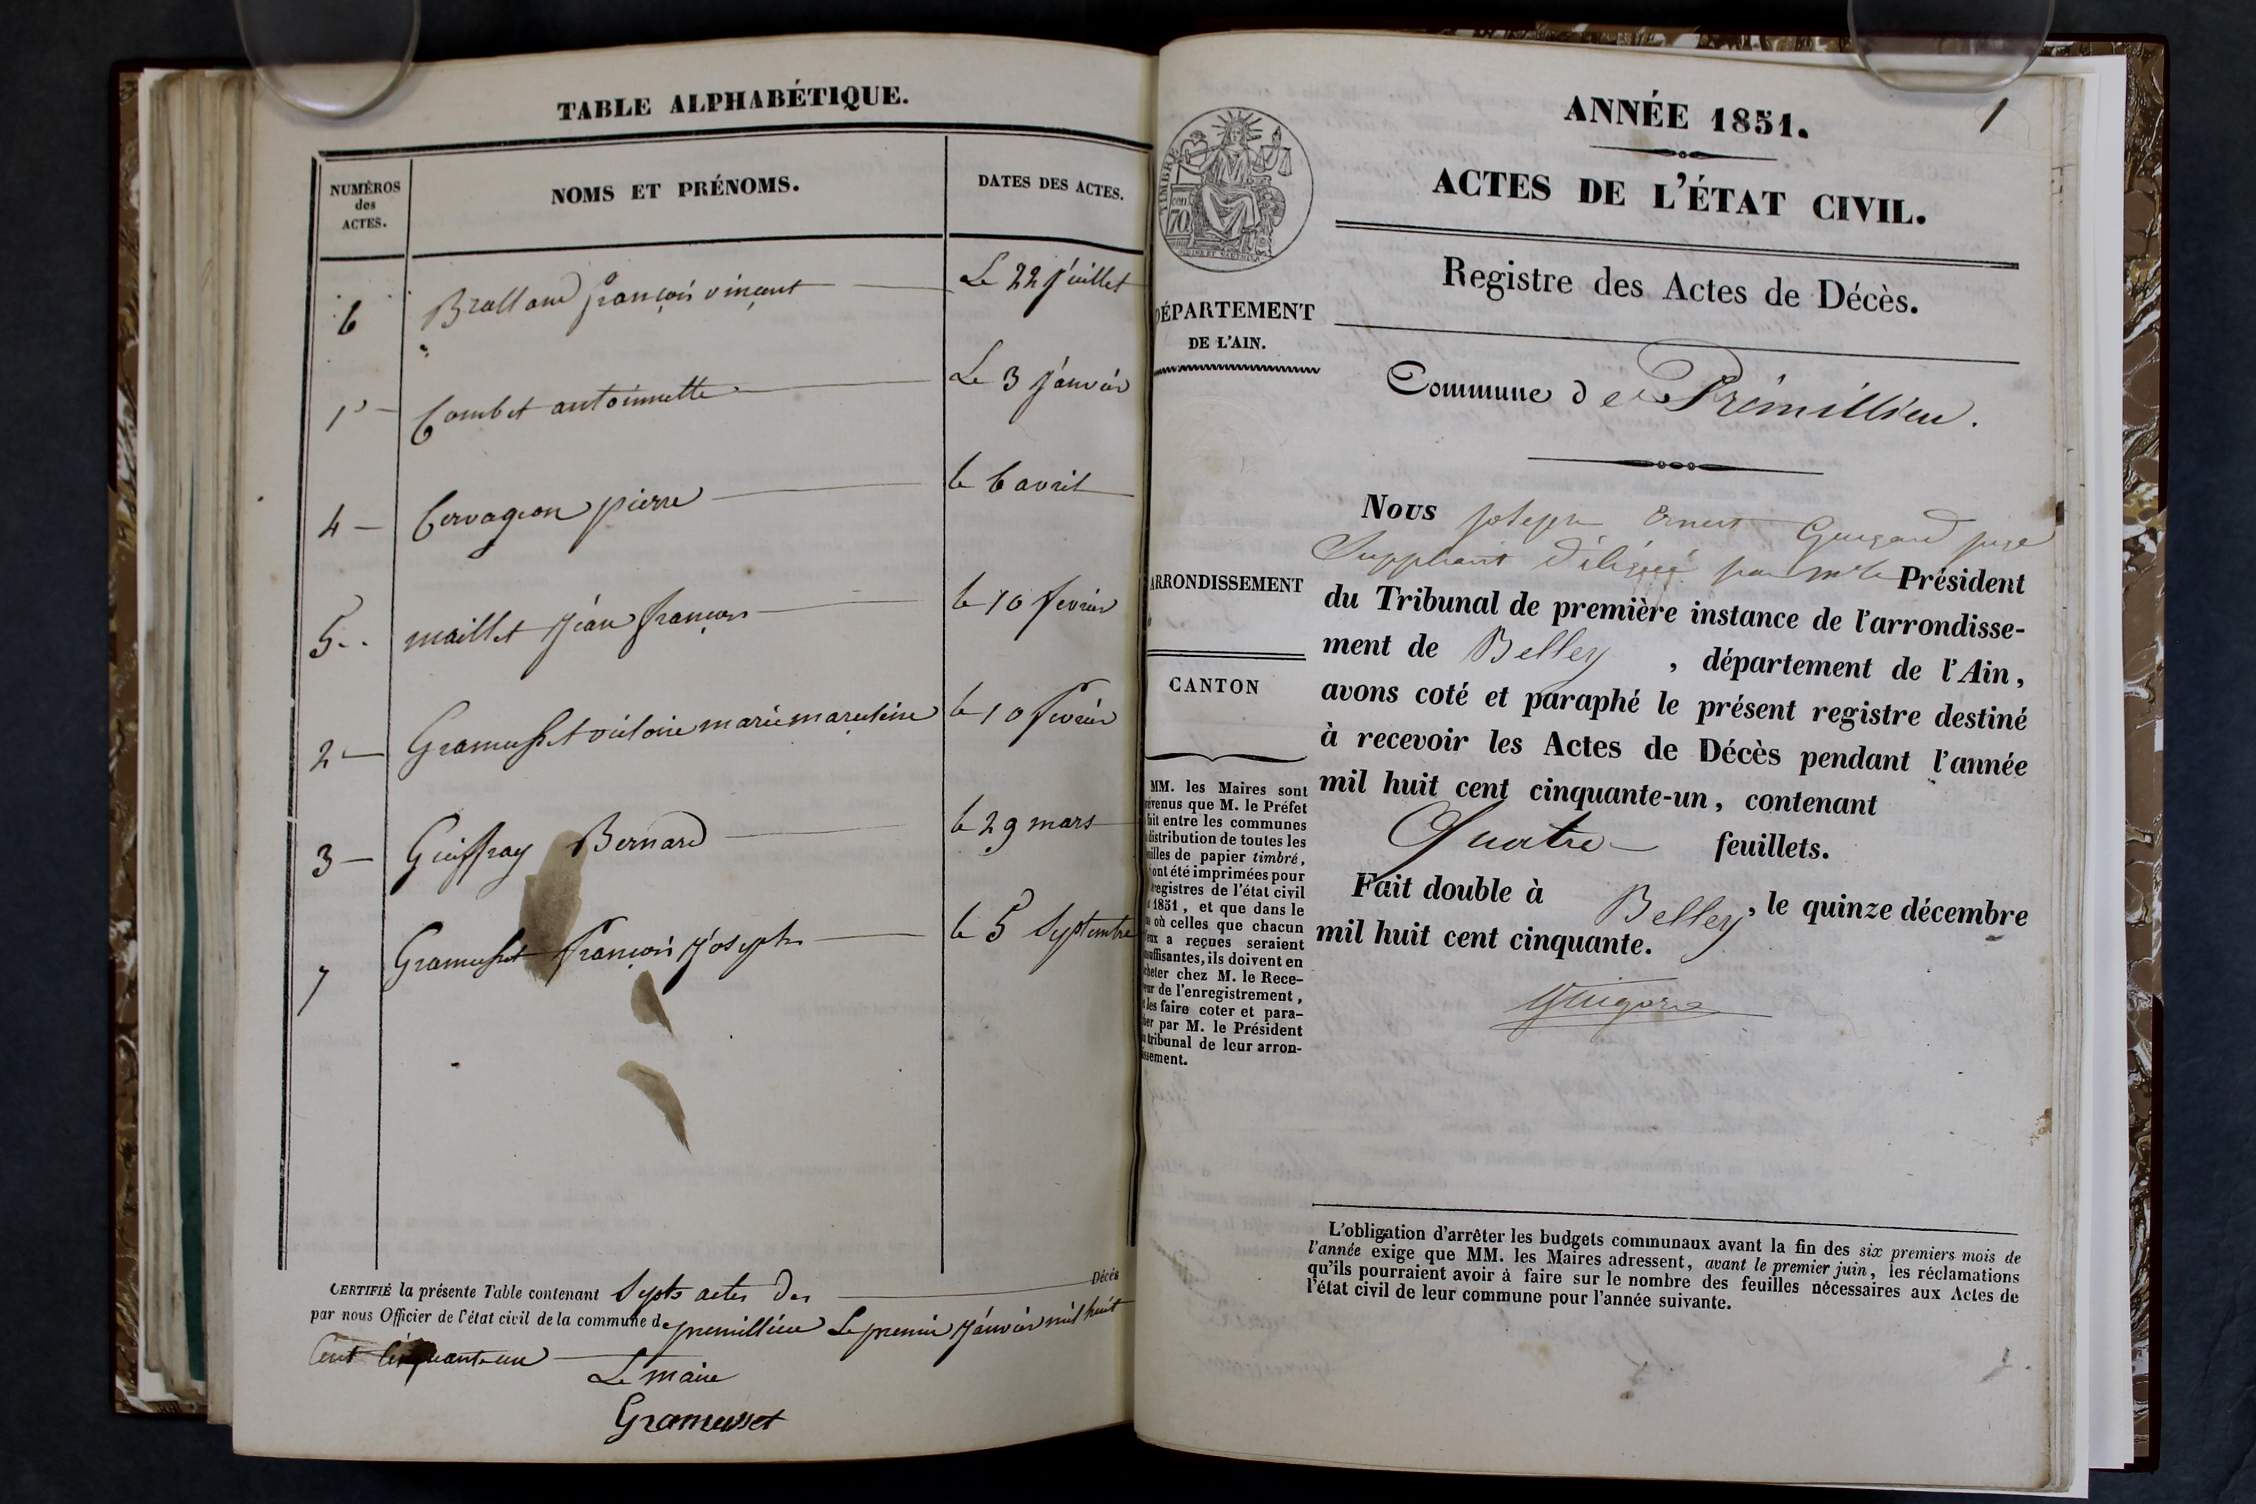 TABLE ALPHABÉTIQUE.
NUMÉROS des ACTES. NOMS ET PRÉNOMS. DATES DES ACTES.
6 Bralland françois vinçent Le 22 juillet
1 Combet antoinette Le 3 janvier
4 Cervageon pierre le 6 avril
5 maillet jéan françois le 10 fevrier
2 Gramusset victoire marie le 10 fevrier
3 Guiffray Bernard le 29 mars
7 Gramusset françois joseph le 5 Septembre
CERTIFIÉ la présente Table contenant Septs actes des Décès
par nous Officier de l'état civil de la commune de premillieu Le premier janvier mil huit
Cent Cinquante un
Le maire
Gramusset
1
ANNÉE 1851.
ACTES DE L'ÉTAT CIVIL.
Registre des Actes de Décès.
Commune de Prémillieu.
TIMBRE
70
DÉPARTEMENT
DE L'AIN.
ARRONDISSEMENT
CANTON
MM. les Maires sont
évenus que M. le Préfet
fait entre les communes
distribution de toutes les
uilles de papier timbré,
i ont été imprimées pour
registres de l'état civil
1851, et que dans le
où celles que chacun
eux a reçues seraient
suffisantes, ils doivent en
cheter chez M. le Rece-
eur de l'enregistrement,
les faire coter et para-
her par M. le Président
tribunal de leur arron-
issement.
Nous joseph Ernest Guigard juge
Suppléant Délégué par Mr le Président
du Tribunal de première instance de l'arrondisse-
ment de Belley, département de l'Ain,
avons coté et paraphé le présent registre destiné
à recevoir les Actes de Décès pendant l'année
mil huit cent cinquante-un, contenant
Quatre feuillets.
Fait double à Belley, le quinze décembre
mil huit cent cinquante.
L'obligation d'arrêter les budgets communaux avant la fin des six premiers mois de
l'année exige que MM. les Maires adressent, avant le premier juin, les réclamations
qu'ils pourraient avoir à faire sur le nombre des feuilles nécessaires aux Actes de
l'état civil de leur commune pour l'année suivante.